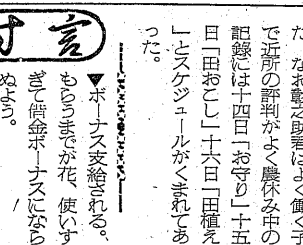 た。なお幹之助君はよく働く子
で近所の評判がよく農休み中の
記録には十四日「お守り」十五
日「田おこし」十六日「田植え
」とスケジュールがくまれてあ
った。
寸言
▼ボーナス支給される。
もらうまでが花、使いす
ぎて借金ボーナスになら
ぬよう。